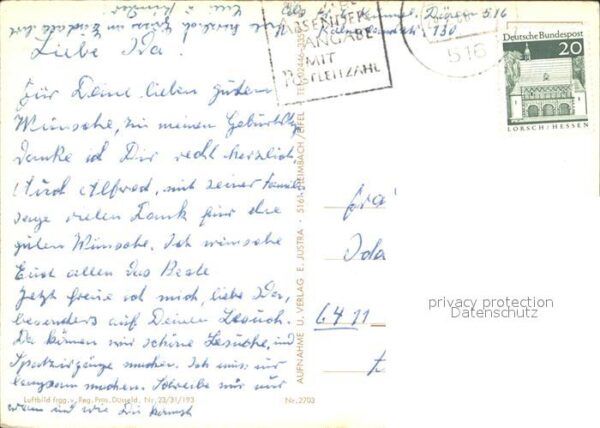 Liebe Ida!
Für Deine lieben guten
Wünsche, zu meinen Geburtstag
danke ich Dir recht herzlich
Auch Alfred, mit seiner Familie
sage vielen Dank für die
guten Wünsche. Ich wünsche
Euch allen das Beste
Jetzt freue ich mich, liebe Ida,
besonders auf Deinen Besuch.
Da können wir schöne Besuche, und
Spaziergänge machen. Ich muss nur
langsam machen. Schreibe mir nur
wann und wie Du kommst
Düren 516
130
ABSENDER-
ANGABE
MIT
POSTLEITZAHL
516
Deutsche Bundespost
20
LORSCH/HESSEN
AUFNAHME U. VERLAG E. JUSTRA · 5161 BLEIMBACH/EIFEL
Ida
6411
privacy protection
Datenschutz
Luftbild frgg. v. Reg. Präs. Düsseld. Nr. 23/31/193
Nr. 2703